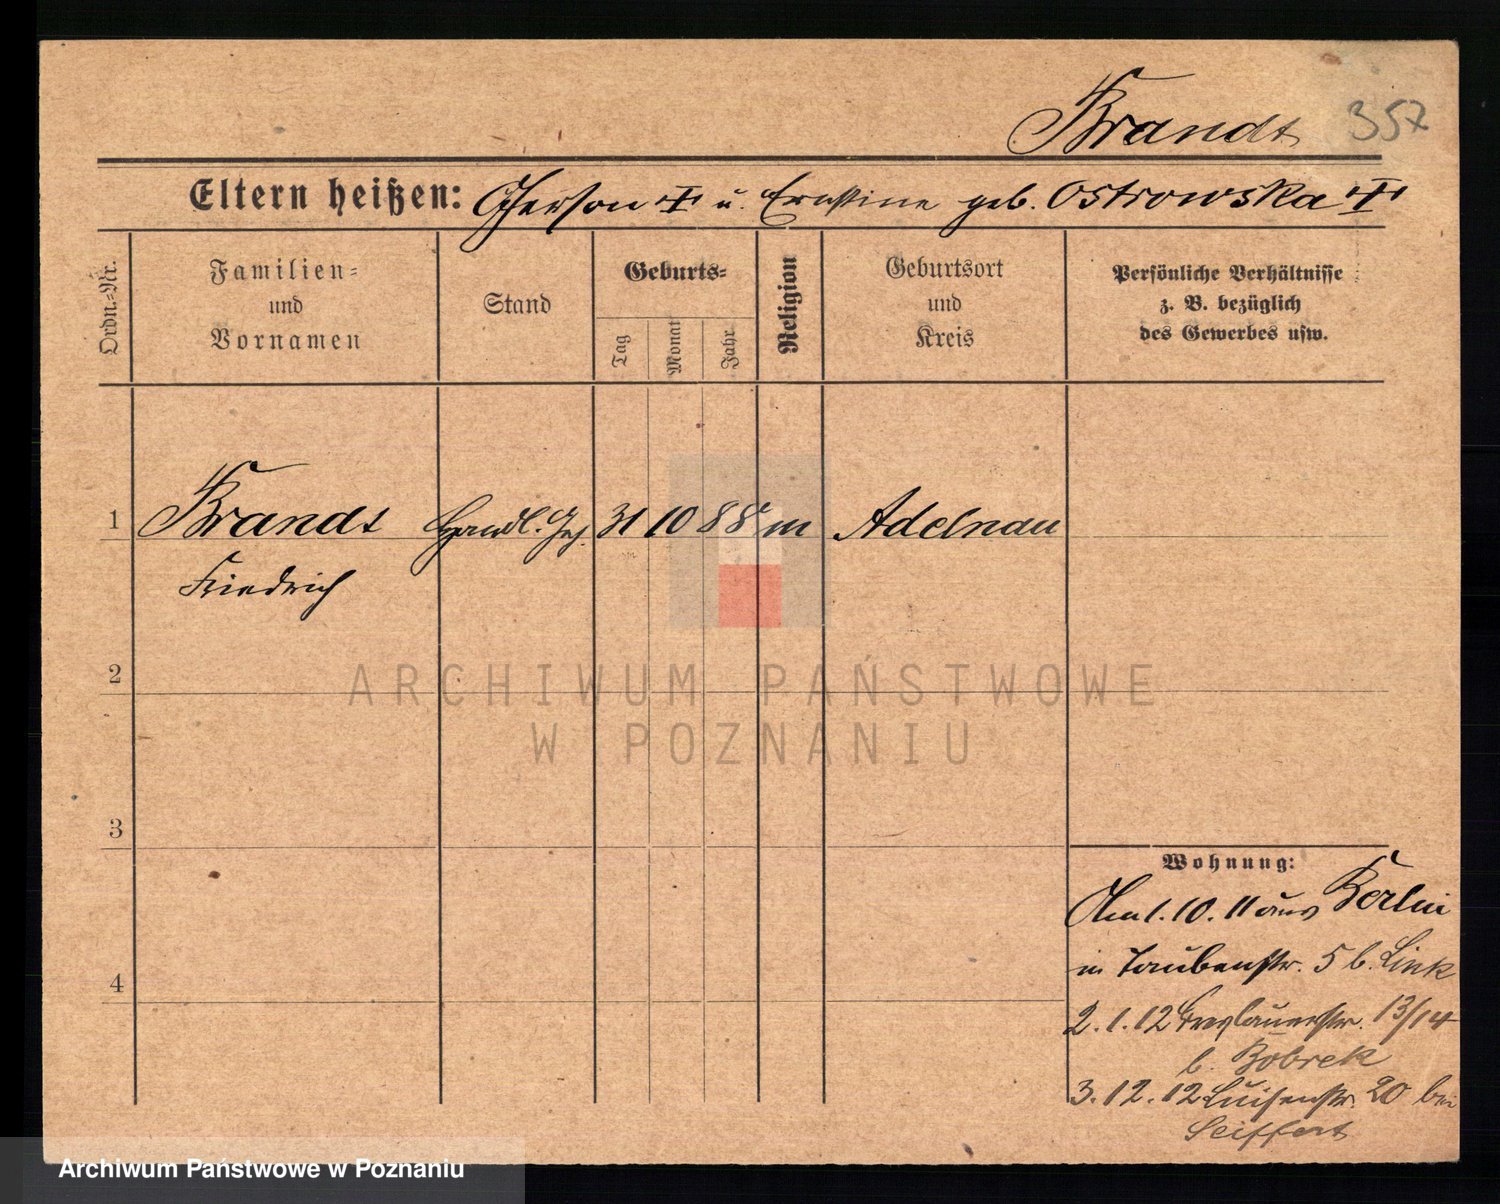 Brandt 357
Eltern heißen: Gerson u. Ernstine geb. Ostrowska
Ordn.-Nr.
Familien-
und
Vornamen
Stand
Geburts-
Tag
Monat
Jahr
Religion
Geburtsort
und
Kreis
Persönliche Verhältnisse
z. B. bezüglich
des Gewerbes usw.
1 Brandt Handl. Geh. 31 10 88 m Adelnau
Friedrich
2
ARCHIWUM PAŃSTWOWE
W POZNANIU
3
4
Wohnung:
Am 1. 10. 11 aus Berlin
in Taubenstr. 5 b. Link
2. 1. 12 Breslauerstr. 13/14
b. Bobrek
3. 12. 12 Luisenstr. 20 bei
Seiffert
Archiwum Państwowe w Poznaniu